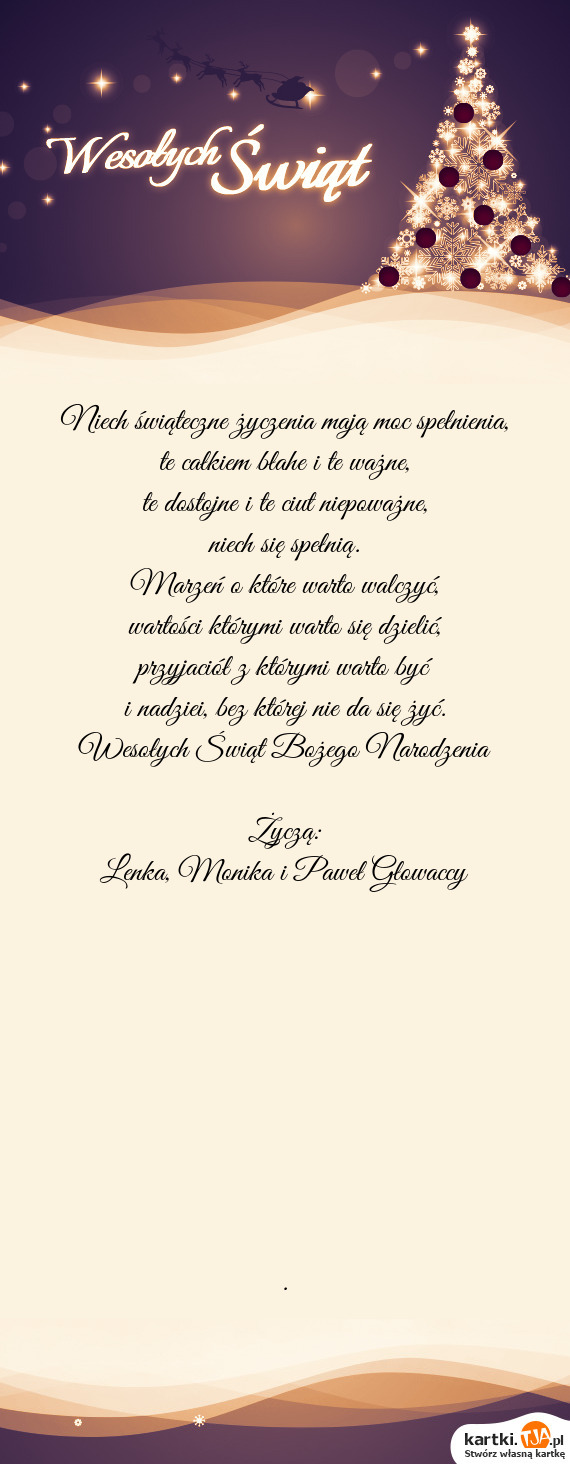 Wesołych Świąt
Niech świąteczne życzenia mają moc spełnienia,
te całkiem błahe i te ważne,
te dostojne i te ciut niepoważne,
niech się spełnią.
Marzeń o które warto walczyć,
wartości którymi warto się dzielić,
przyjaciół z którymi warto być
i nadziei, bez której nie da się żyć.
Wesołych Świąt Bożego Narodzenia
Życzą:
Lenka, Monika i Paweł Głowaccy
.
kartki.TJA.pl
Stwórz własną kartkę